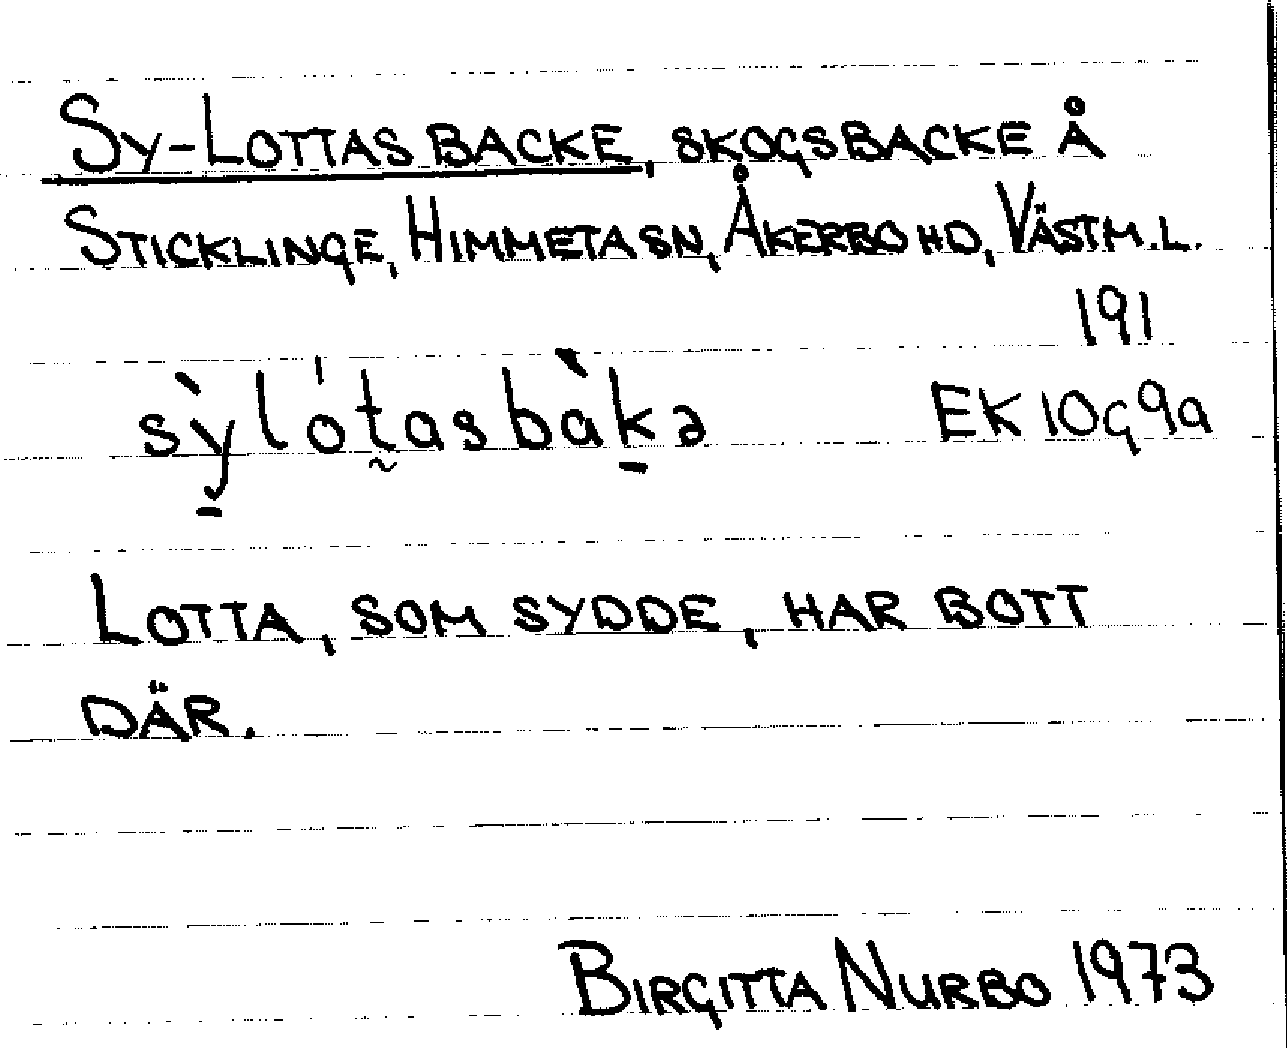 SY-LOTTAS BACKE, SKOGSBACKE Å
STICKLINGE, HIMMETA SN, ÅKERBO HD, VÄSTM.L.
191
sỳ̱lót̰asbàḵə EK 10g9a
LOTTA, SOM SYDDE, HAR BOTT
DÄR.
BIRGITTA NURBO 1973